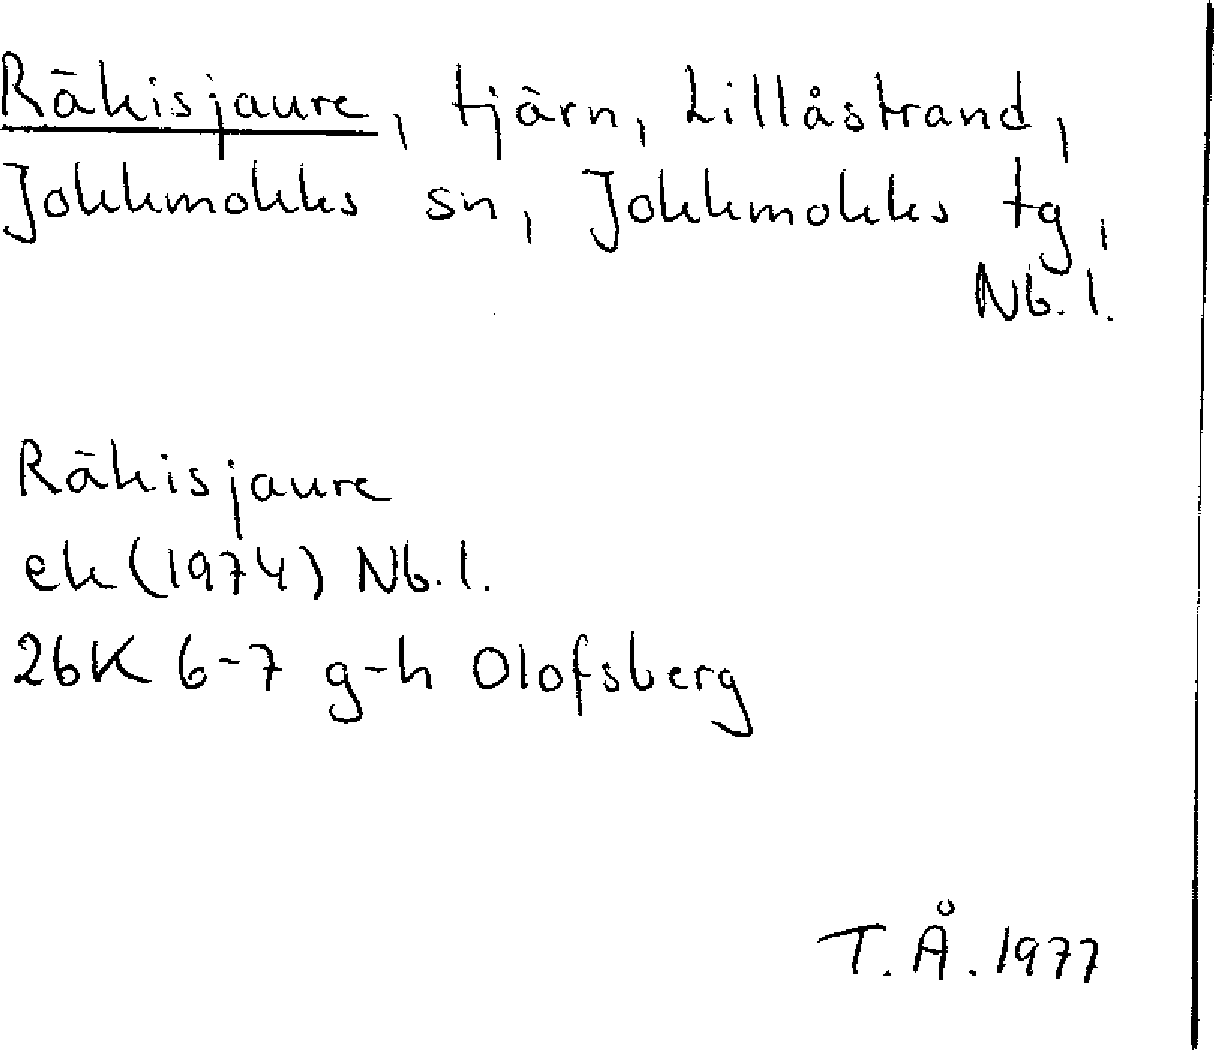 Räkisjaure, tjärn, Lillåstrand,
Jokkmokks sn, Jokkmokks tg,
Nb. l.
Räkisjaure
ek (1974) Nb. l.
26K 6-7 g-h Olofsberg
T. Å. 1977